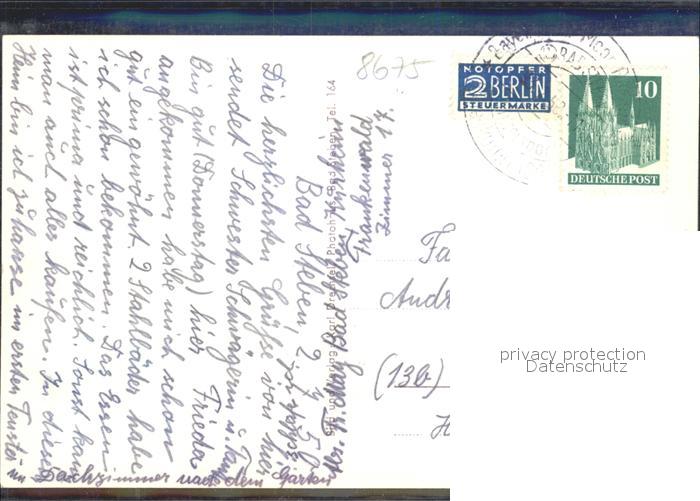 8675
NOTOPFER
2 BERLIN
STEUERMARKE
10
DEUTSCHE POST
Bad Steben, 2.
Die herzlichsten Grüße von hier
sendet Schwester Schwägerin u. Tante
Bin gut (Donnerstag) hier Frieda
angekommen habe mich schon
gut eingewöhnt. 2 Stahlbäder habe
ich schon bekommen. Das Essen
ist prima und reichlich. Sonst kann
man auch alles kaufen. In diesem
Heim bin ich zuhause im ersten Fenster
im Dachzimmer nach dem Garten
Bad Steben
Frankenwald
Zimmer 17.
Bad Steben, Tel. 164
Fa
Andr
(13b)
H
privacy protection
Datenschutz